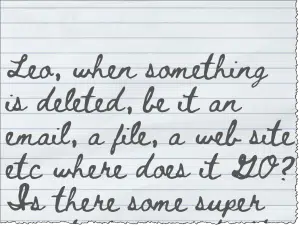 Leo, when something
is deleted, be it an
email, a file, a web site
etc where does it GO?
Is there some super